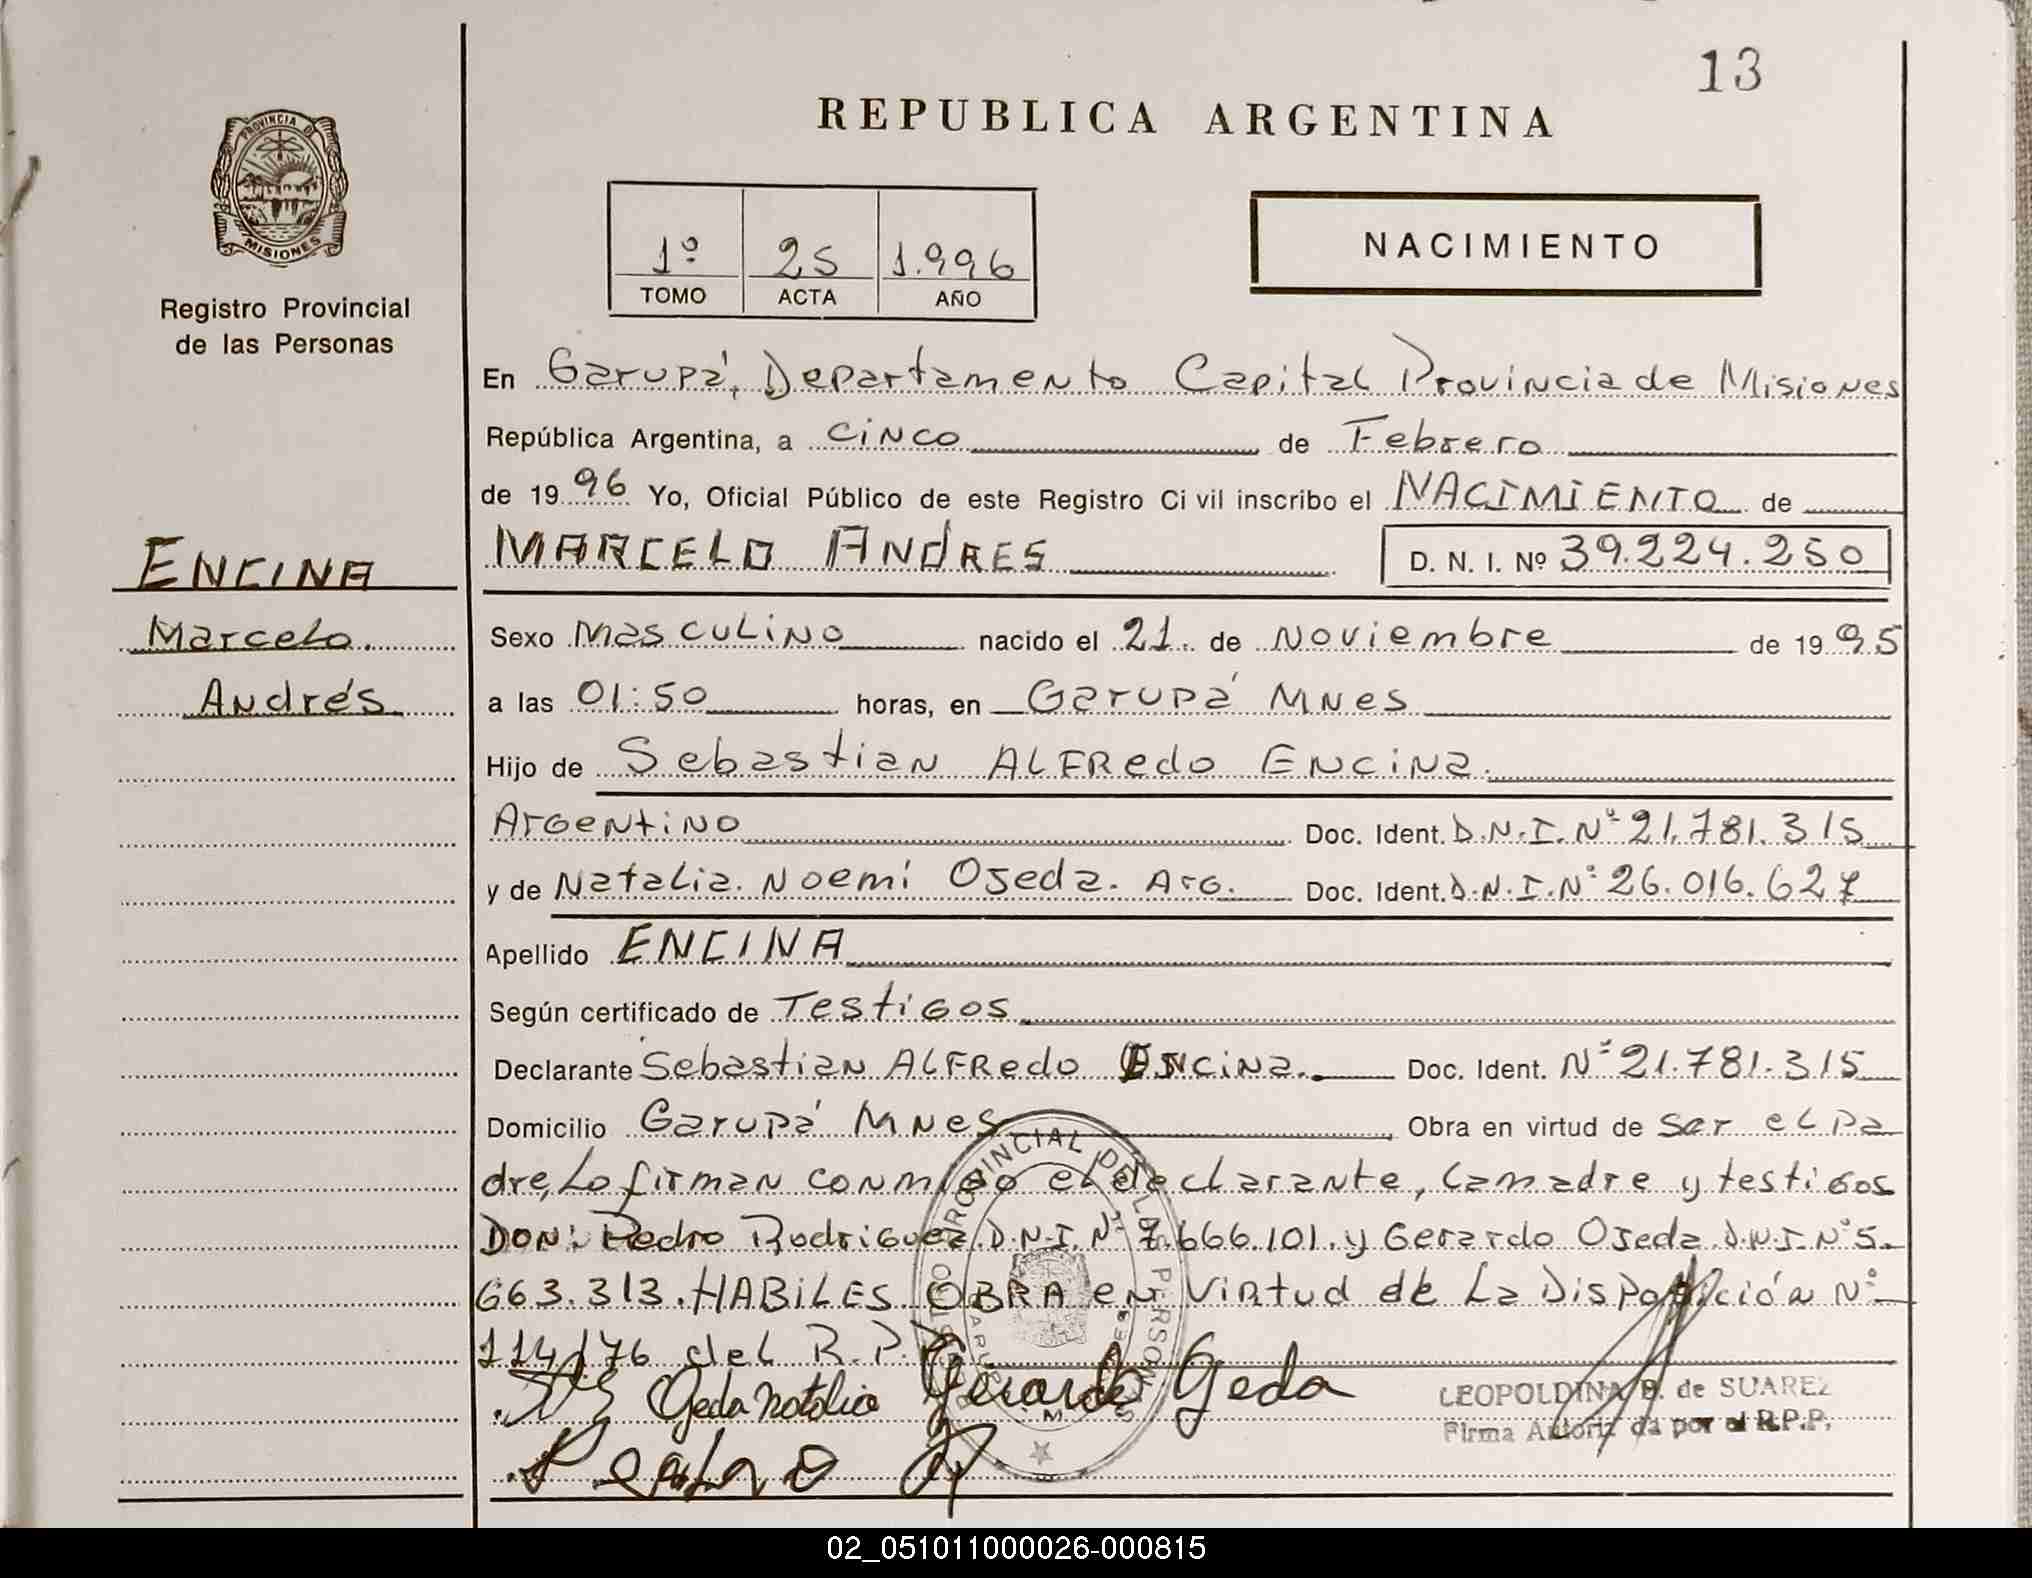 13
REPUBLICA ARGENTINA
PROVINCIA DE
MISIONES
Registro Provincial
de las Personas
1º 25 1.996
TOMO ACTA AÑO
NACIMIENTO
En Garupá, Departamento Capital Provincia de Misiones
República Argentina, a cinco de Febrero
de 1996 Yo, Oficial Público de este Registro Civil inscribo el NACIMIENTO de
ENCINA
Marcelo
Andrés
MARCELO ANDRES D. N. I. Nº 39.224.250
Sexo Masculino nacido el 21 de Noviembre de 1995
a las 01:50 horas, en Garupá Mnes
Hijo de Sebastian Alfredo Encina
Argentino Doc. Ident. D.N.I.Nº 21.781.315
y de Natalia Noemí Ojeda. Arg. Doc. Ident. D.N.I.Nº 26.016.627
Apellido ENCINA
Según certificado de Testigos
Declarante Sebastian Alfredo Encina. Doc. Ident. Nº 21.781.315
Domicilio Garupá Mnes Obra en virtud de ser el pa
dre, Lo firman conmigo el declarante, la madre y testigos
DON: Pedro Rodriguez D.N.I.Nº 7.666.101. y Gerardo Ojeda D.N.I.Nº 5.
663.313. HABILES OBRA en Virtud de La Disposición Nº
114/76 del R.P.P.
Ojeda Natalia Gerardo Ojeda
LEOPOLDINA B. de SUAREZ
Firma Autorizada por el R.P.P.
Pedro R
REGISTRO PROVINCIAL DE LAS PERSONAS
02_051011000026-000815